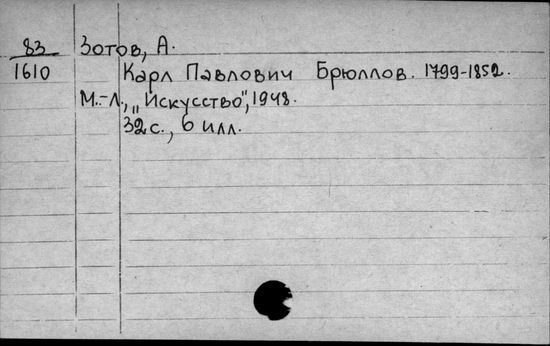 83 Зотов, А.
1610 Карл Павлович Брюллов. 1799-1852.
М.-Л., „Искусство", 1948.
32 с., 6 илл.